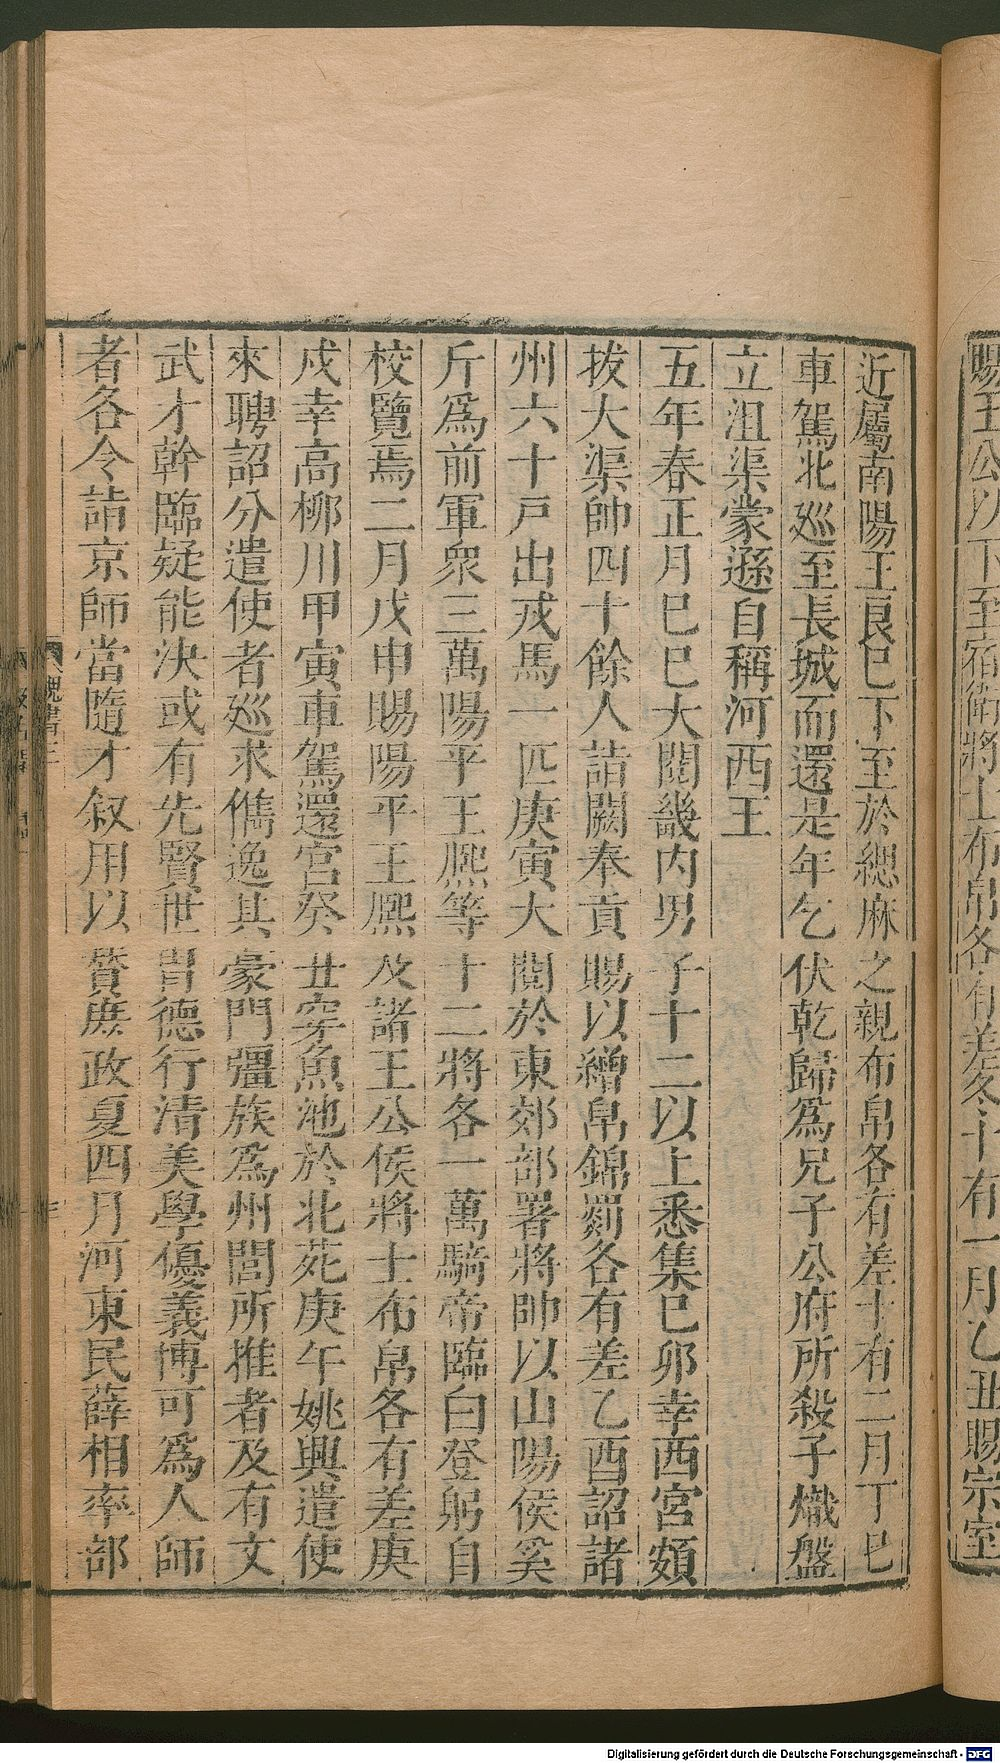 賜王公以下至宿衛將士布帛各有差冬十有一月乙丑賜宗室
近屬南陽王良已下至於緦麻之親布帛各有差十有二月丁巳
車駕北廵至長城而還是年乞伏乾歸爲兄子公府所殺子熾盤
立沮渠蒙遜自稱河西王
五年春正月己巳大閱畿內男子十二以上悉集己卯幸西宮頞
拔大渠帥四十餘人詣闕奉貢賜以繒帛錦罽各有差乙酉詔諸
州六十戸出戎馬一匹庚寅大閱於東郊部署將帥以山陽侯奚
斤爲前軍衆三萬陽平王熈等十二將各一萬騎帝臨白登躬自
校覽焉二月戊申賜陽平王熈及諸王公侯將士布帛各有差庚
戍幸高栁川甲寅車駕還宮癸丑穿魚池於北苑庚午姚興遣使
來聘詔分遣使者廵求儁逸其豪門彊族爲州閭所推者及有文
武才幹臨疑能決或有先賢世胄德行清美學優義博可爲人師
者各令詣京師當隨才叙用以贊庶政夏四月河東民薛相率部
魏書三
Digitalisierung gefördert durch die Deutsche Forschungsgemeinschaft - DFG